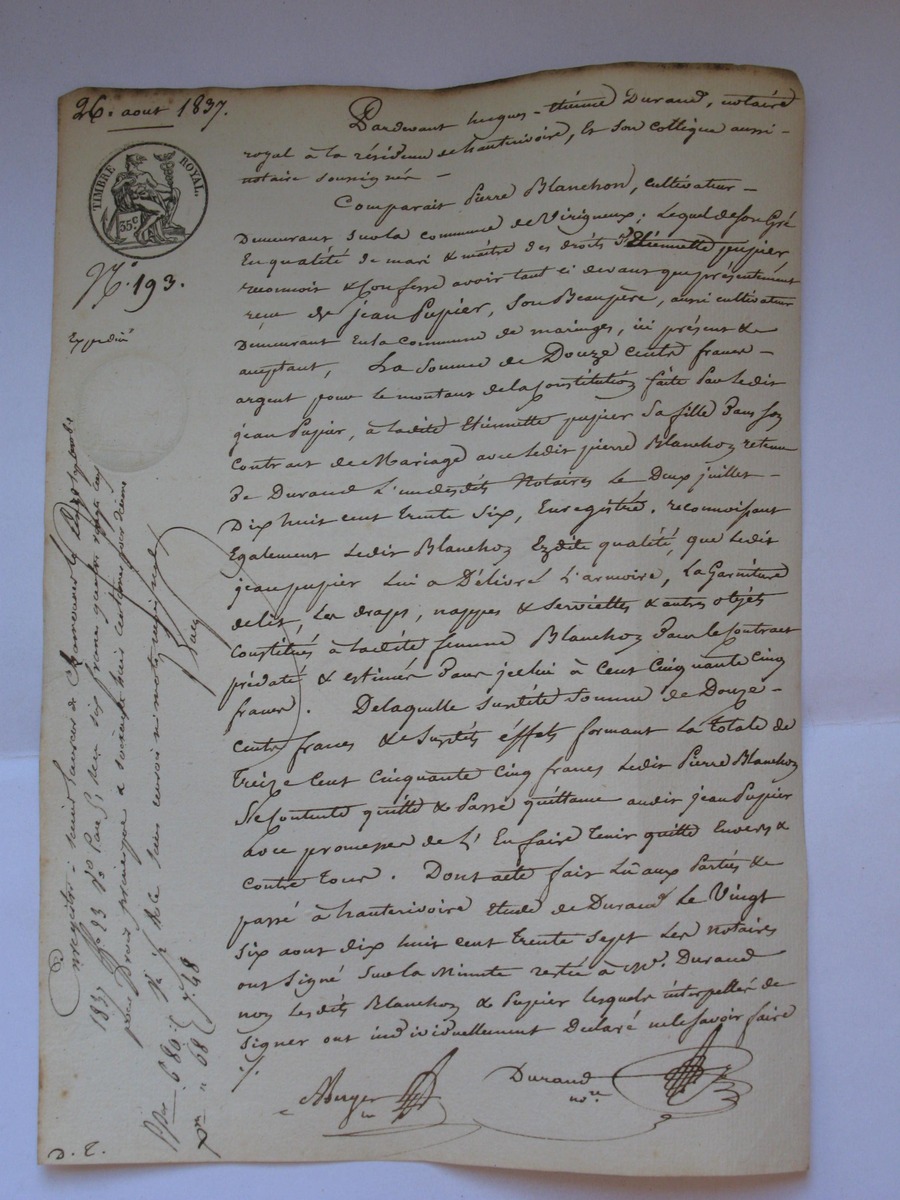 26. aout 1837.
TIMBRE ROYAL.
35 c.
N.° 193.
Expédié
Pardevant hugues-étienne Durand, notaire
royal à la résidence de hauterivoire, & son collègue aussi
notaire soussignés —
Comparait Pierre Blanchon, cultivateur —
Demeurant sur la commune de Virigneux; lequel de son Gré
En qualité de mari & maître des droits d'Etiennette pupier,
reconnoit & Confesse avoir tant ci devant que présentement
reçu de jean Pupier, son Beaupère, aussi cultivateur
Demeurant en la commune de maringes, ici présent &
acceptant, La Somme de Douze cents francs —
argent pour le montant de la Constitution faite Par ledit
jean Pupier, à ladite Etiennette pupier sa fille Dans son
Contrat de Mariage avec ledit pierre Blanchon retenu
De Durand L'un desdits Notaires Le Deux juillet —
Dix huit cent trente Six, Enregistré. reconnoissant
Egalement Ledit Blanchon Ezdite qualité, que Ledit
jean pupier Lui a Délivré L'armoire, La Garniture
de lit, Les draps, nappes & serviettes & autres objets
Constitués à ladite femme Blanchon Dans le Contrat
prédaté & estimés Dans jcelui à Cent Cinquante Cinq
francs. De laquelle susdite somme de Douze —
Cents francs & susdits éffets formant La Totale de
Treize Cent Cinquante Cinq francs Ledit Pierre Blanchon
Se Contente quitte & Passe quittance audit jean Pupier
avec promesse de L'En faire Tenir quitte Envers &
Contre Tous. Dont acte fait Lû aux Parties &
passé à hauterivoire Etude de Durand Le Vingt
Six aout dix huit cent trente Sept Les notaires
ont Signé Sur la Minute restée à Me. Durand
non Lesdits Blanchon & Pupier lesquels interpellés de
Signer ont individuellement Déclaré ne le Savoir faire
Durand
nore
Enregistré à Saint Laurent de Chamousset le
1837 fo 23 Vo Case, reçu six francs quatre vingts cen
pour Droit principal & soixante huit centimes pour dixième
ppal 6 80
xme " 68
7.48
D. E.